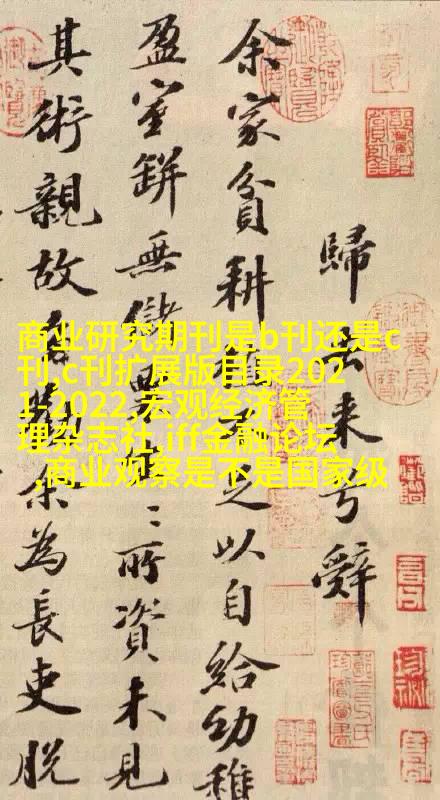 歸去来兮辭
余家貧耕植不足以自給幼稚
盈室缾無儲粟生〻所資未見
其術親故多勸余為長吏脱
商业研究期刊是b刊还是c
刊,c刊扩展版目录202
1-2022,宏观经济管
理杂志社,iff金融论坛
,商业观察是不是国家级